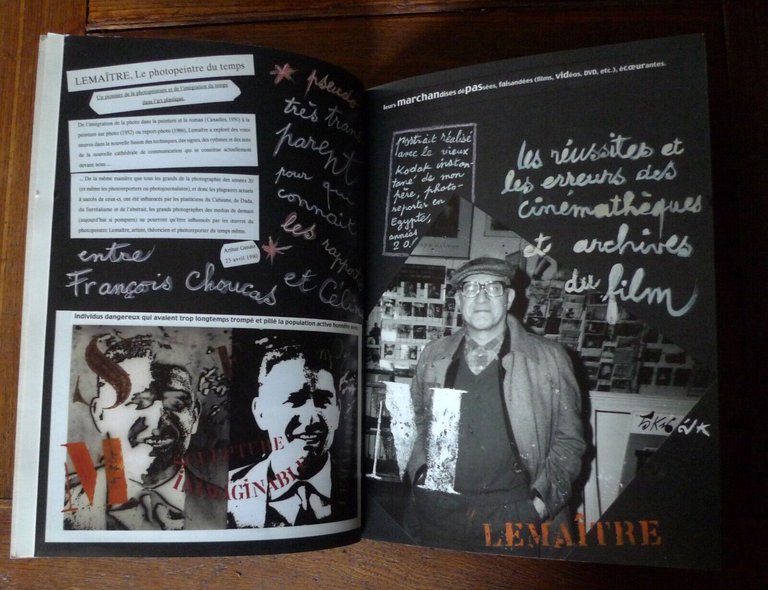 LEMAÎTRE, Le photopeintre du temps
Un pionnier de la photopeinture et de l'intégration du temps
dans l'art plastique.
De l'intégration de la photo dans la peinture et le roman (Canailles, 1950) à la
peinture sur photo (1952) ou report-photo (1966), Lemaître a exploré des voies
neuves dans la nouvelle fusion des techniques, des signes, des rythmes et des sens
de la nouvelle cathédrale de communication qui se constitue actuellement
devant nous...
... De la même manière que tous les grands de la photographie des années 20
(et même les photoreporters ou photojournalistes), et donc les plagiaires actuels
à succès de ceux-ci, ont été influencés par les plasticiens du Cubisme, de Dada,
du Surréalisme et de l'abstrait, les grands photographes des medias de demain
(aujourd'hui si pompiers) ne pourront qu'être influencés par les œuvres du
photopeintre Lemaître, artiste, théoricien et photoreporter du temps même.
Arthur
23 avril 1990
* pseudo
très trans
parent
pour qui
connaît
* les rapports
entre
François Choucas et Céli
individus dangereux qui avaient trop longtemps trompé et pillé la population active honnête
S
M
SCULPTURE
IMMAGINABLE
leurs marchandises dépassées, faisandées (films, vidéos, DVD, etc.), écœurantes.
portrait réalisé
avec le vieux
Kodak instan-
tané de mon
père, photo-
reporter en
Egypte,
années
20!
les réussites et
les erreurs des
cinémathèques
et archives
du film
LEMAÎTRE